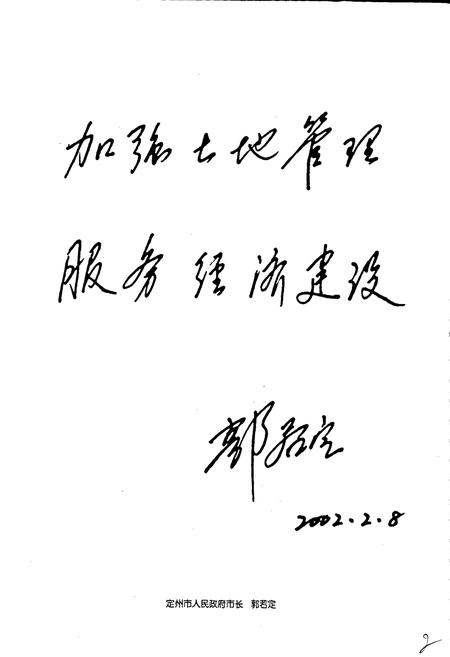 加强土地管理
服务经济建设
郭若定
2002.2.8
定州市人民政府市长 郭若定
2